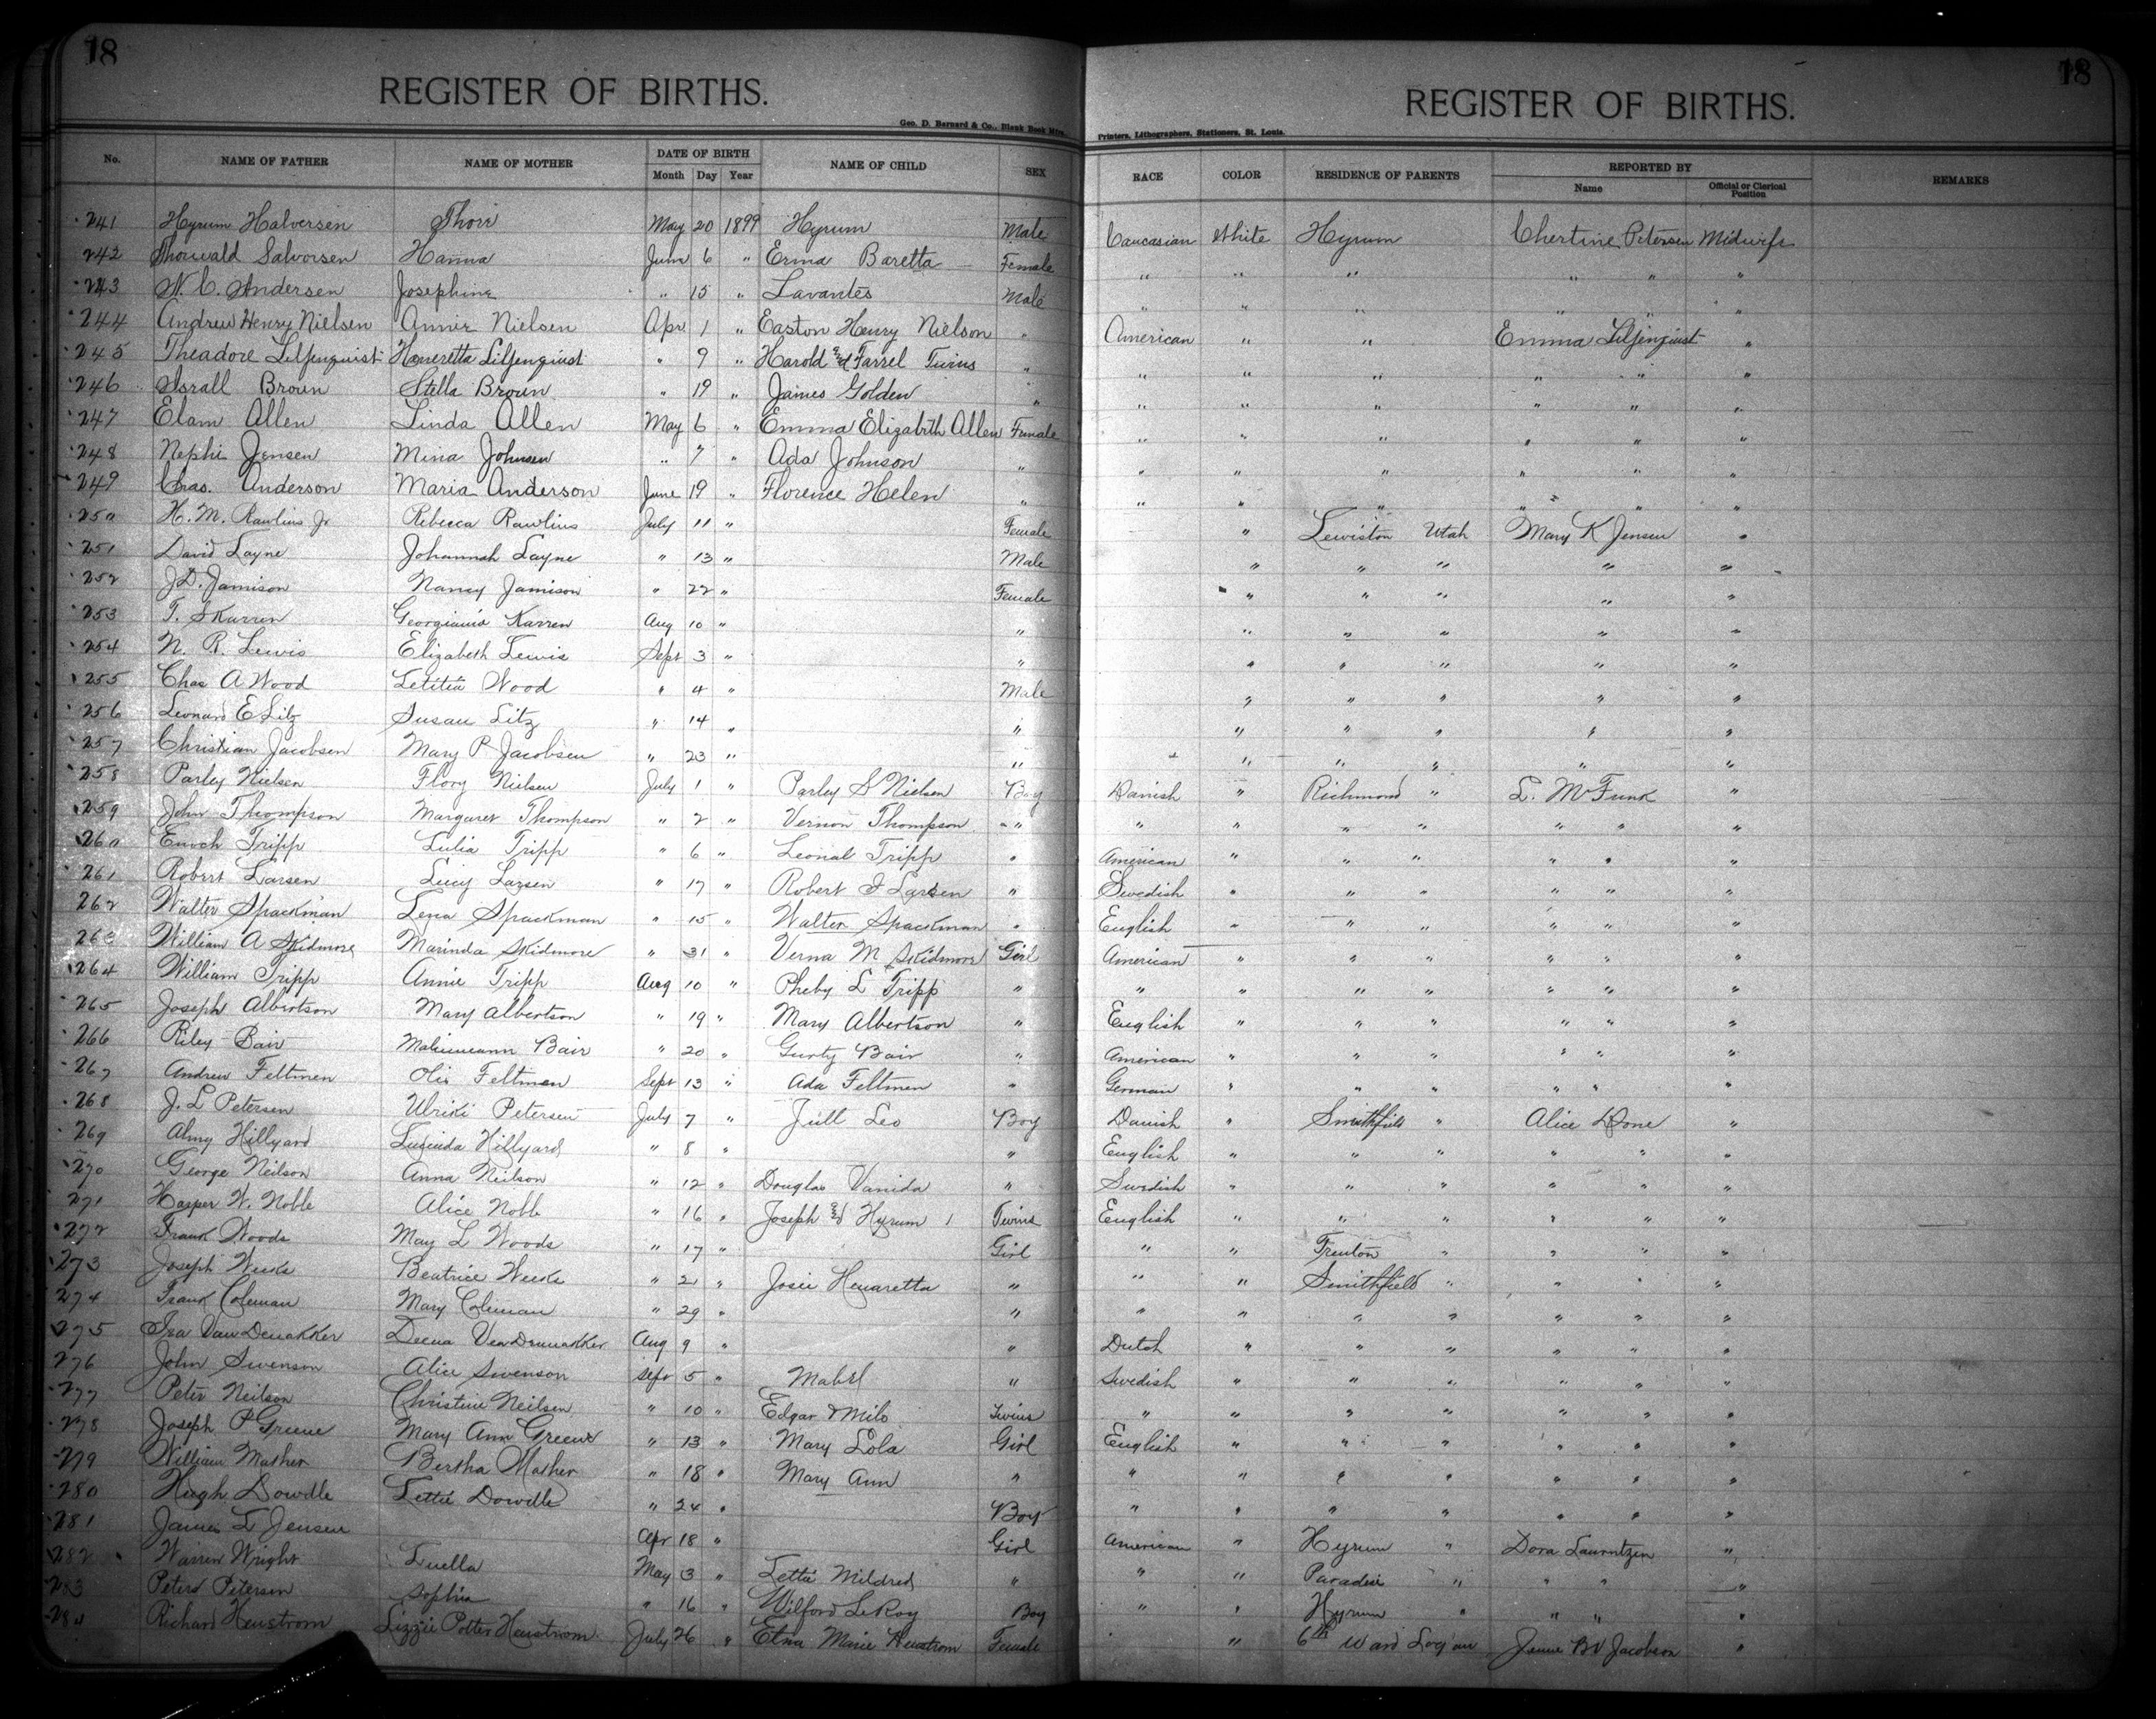 18
18
REGISTER OF BIRTHS.
REGISTER OF BIRTHS.
Geo. D. Barnard & Co., Blank Book Mfrs.,
Printers, Lithographers, Stationers, St. Louis.
No. NAME OF FATHER NAME OF MOTHER DATE OF BIRTH NAME OF CHILD SEX RACE COLOR RESIDENCE OF PARENTS REPORTED BY REMARKS
Month Day Year Name Official or Clerical Position
241 Hyrum Halversen May 20 1899 Hyrum Male Caucasian White Hyrum Chertine Petersen Midwife
242 Thorwald Salvorsen Hanna June 6 " Erma Baretta Female " " " " " "
243 N. C. Andersen Josephine " 15 " Lavantes Male " " " " " "
244 Andrew Henry Nielsen Annie Nielsen Apr 1 " Easton Henry Nielson " American " " Emma Liljenquist "
245 Theadore Liljenquist Heneretta Liljenquist " 9 " Harold and Farrel Twins " " " " " " "
246 Israll Brown Stella Brown " 19 " James Golden " " " " " " "
247 Elam Allen Linda Allen May 6 " Emma Elizabeth Allen Female " " " " " "
248 Nephi Jensen Mina Johnsen " 7 " Ada Johnson " " " " " " "
249 Chas. Anderson Maria Anderson June 19 " Florence Helen " " " " " " "
250 H. M. Rawlins Jr Rebecca Rawlins July 11 " Female " Lewiston Utah Mary K Jensen "
251 David Layne Johannah Layne " 13 " Male " " " " "
252 J. D. Jamison Nancy Jamison " 22 " Female " " " " "
253 T. S Karren Georgiania Karren Aug 10 " " " " " " "
254 N. R. Lewis Elizabeth Lewis Sept 3 " " " " " " "
255 Chas A Wood Letitia Wood " 4 " Male " " " " "
256 Leonard E Litz Susan Litz " 14 " " " " " " "
257 Christian Jacobsen Mary P Jacobsen " 23 " " " " " " "
258 Parley Nielsen Flory Nielsen July 1 " Parley S Nielsen Boy Danish " Richmond " L. M Funk "
259 John Thompson Margaret Thompson " 2 " Vernon Thompson " " " " " " " "
260 Enoch Tripp Lulia Tripp " 6 " Leonal Tripp " American " " " " " "
261 Robert Larsen Lucy Larsen " 17 " Robert I Larsen " Swedish " " " " " "
262 Walter Spackman Lena Spackman " 15 " Walter Spackman " English " " " " " "
263 William A Skidmore Marinda Skidmore " 31 " Verna M Skidmore Girl American " " " " " "
264 William Tripp Annie Tripp Aug 10 " Pheby L Tripp " " " " " " " "
265 Joseph Albertson Mary Albertson " 19 " Mary Albertson " English " " " " " "
266 Riley Bair Bair " 20 " Gurty Bair " American " " " " " "
267 Andrew Feltmen Olis Feltmen Sept 13 " Ada Feltmen " German " " " " " "
268 J. L Petersen Ulriki Petersen July 7 " Jull Leo Boy Danish " Smithfield " Alice Done "
269 Almy Hillyard Lucinda Hillyard " 8 " " English " " " " " "
270 George Neilson Anna Neilson " 12 " Douglas Vanida " Swedish " " " " " "
271 Harper W. Noble Alice Noble " 16 " Joseph and Hyrum Twins English " " " " " "
272 Frank Woods May L Woods " 17 " Girl " " Trenton " " " "
273 Joseph Weeks Beatrice Weeks " 21 " Josie Henaretta " " " Smithfield " " " "
274 Frank Coleman Mary Coleman " 29 " " " " " " " " "
275 Ira VanDenakker Deena VanDenakker Aug 9 " " Dutch " " " " " "
276 John Swenson Alice Swenson Sept 5 " Mabel " Swedish " " " " " "
277 Peter Neilson Christine Neilsen " 10 " Edgar & Milo Twins " " " " " " "
278 Joseph P Greene Mary Ann Greene " 13 " Mary Lola Girl English " " " " " "
279 William Mather Bertha Mather " 18 " Mary Ann " " " " " " " "
280 Hugh Dowdle Lettie Dowdle " 24 " Boy " " " " " " "
281 James L Jensen Apr 18 " Girl American " Hyrum " Dora Laurntzen "
282 Warren Wright Luella May 3 " Lettie Mildred " " " Paradise " " " "
283 Peter Petersen Sophia " 16 " Wilford LeRoy Boy " " Hyrum " " " "
284 Richard Henstrom Lizzie Potter Henstrom July 26 " Etna Marie Henstrom Female " 6th Ward Logan Jennie Jacobson "